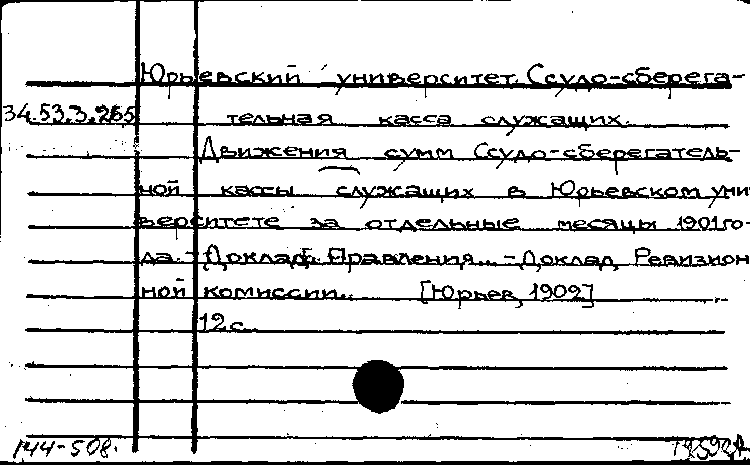 Юрьевский университет. Ссудо-сберега-
34.53.3.265 тельная касса служащих.
Движения сумм Ссудо-сберегатель-
ной кассы служащих в Юрьевском уни-
верситете за отдельные месяцы 1901 го-
да. - Доклад Правления... - Доклад Ревизион
ной комиссии... [Юрьев, 1902]
12 с.
144-508.